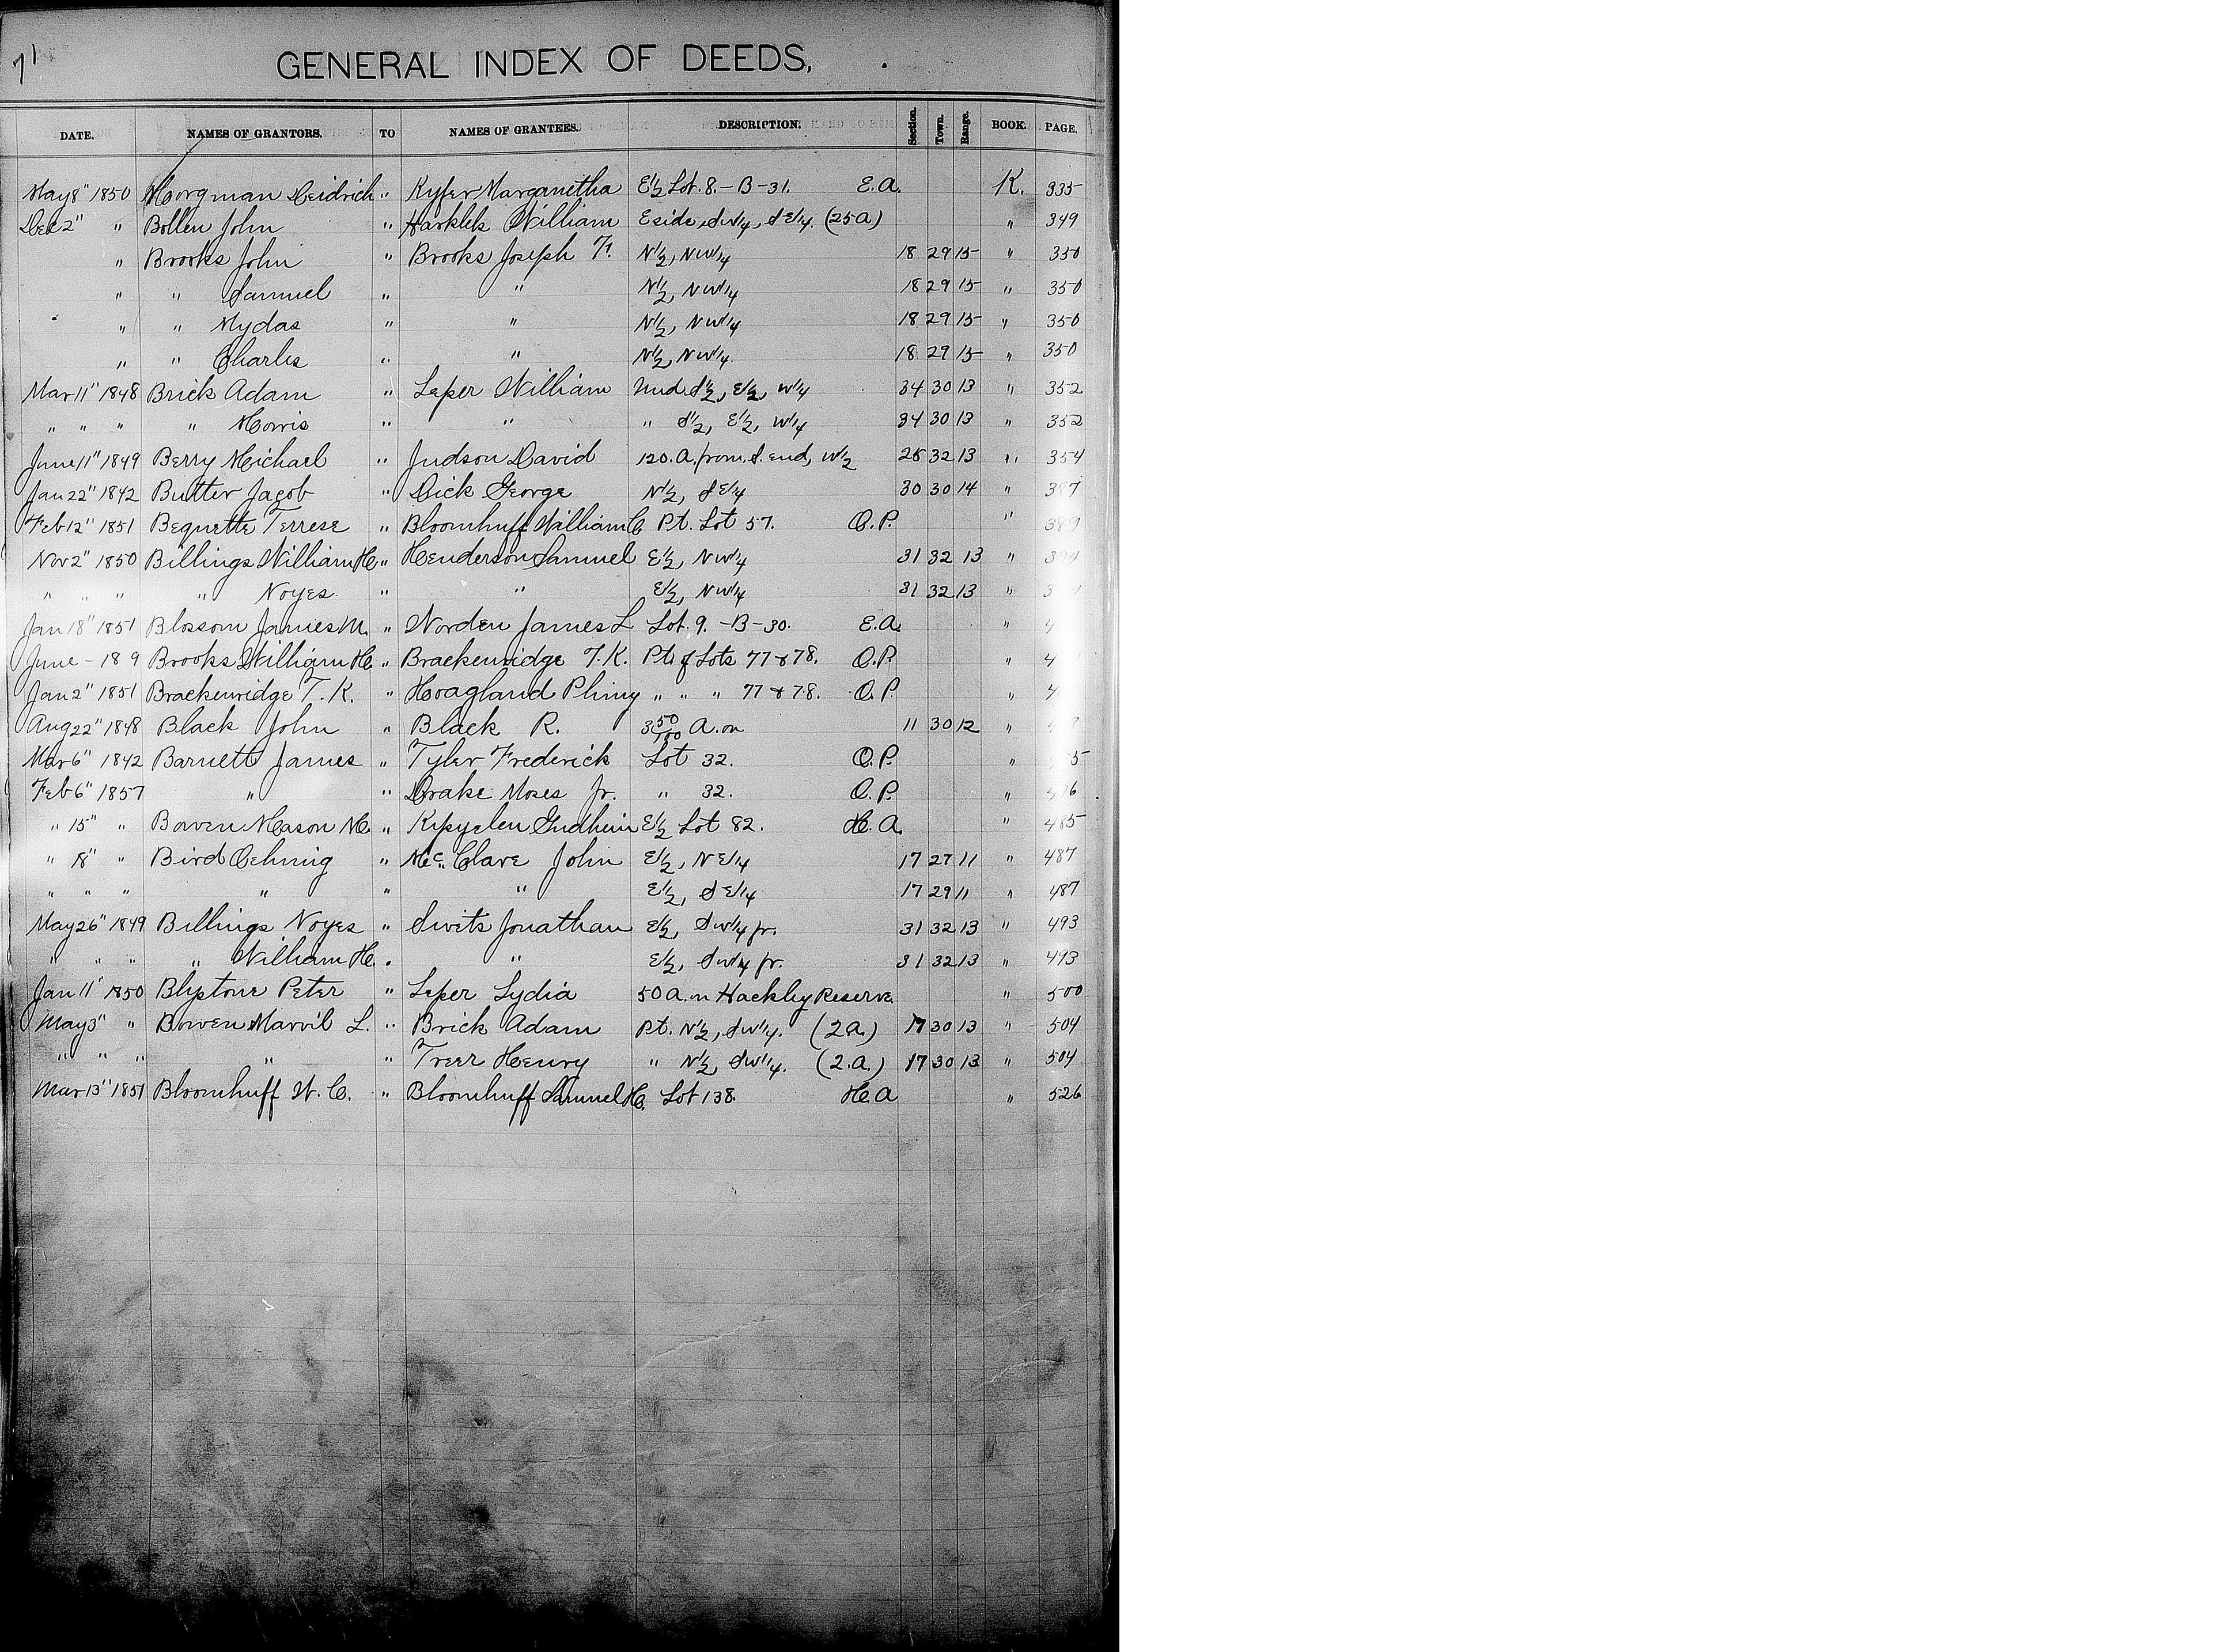 71
GENERAL INDEX OF DEEDS,
DATE. NAMES OF GRANTORS. TO NAMES OF GRANTEES. DESCRIPTION. Section. Town. Range. BOOK. PAGE.
May 8" 1850 Horgman Deidrich " Kyfer Marganetha E1/2 Lot. 8. - B - 31. E.A. K. 335
Dec 2" " Bollen John " William E side, SW1/4, SE1/4. (25a) " 349
" Brooks John " Brooks Joseph F. N1/2, NW1/4 18 29 15 " 350
" " Samuel " " N1/2, NW1/4 18 29 15 " 350
" " Mydas " " N1/2, NW1/4 18 29 15 " 350
" " Charles " " N1/2, NW1/4. 18 29 15 " 350
Mar 11" 1848 Brick Adam " Leper William Und. S1/2, E1/2, W1/4 34 30 13 " 352
" " " " Morris " " " S1/2, E1/2, W1/4 34 30 13 " 352
June 11" 1849 Berry Michael " Judson David 120. A. from. S. end, W1/2 25 32 13 " 354
Jan 22" 1842 Butter Jacob " Dick George N1/2, SE1/4 30 30 14 "
Feb 12" 1851 Bequette Terrese " Bloomhuff William C Pt. Lot 57. O.P. " 389
Nov 2" 1850 Billings William H. " Henderson Samuel E1/2, NW1/4 31 32 13 "
" " " " Noyes. " " E1/2, NW1/4 31 32 13 "
Jan 18" 1851 Blossom James M. " Worden James L Lot. 9. - B - 30. E.A. " 4
June - 18 9 Brooks William H. " Brackenridge T. K. Pts of Lots 77 & 78. O.P. " 4
Jan 2" 1851 Brackenridge T. K. " Hoagland Pliny " " " 77 & 78. O.P. " 4
Aug 22" 1848 Black John " Black R. 3 50/100 A. on 11 30 12 "
Mar 6" 1842 Barnett James " Tyler Frederick Lot 32. O.P. " 5
Feb 6" 1857 " " Drake Moses Jr. " 32. O.P. "
" 15" " Bowen Mason M. " E1/2 Lot 82. H.A. " 485
" 18" " Bird Ochmig " Mc. Clare John E1/2, NE1/4 17 27 11 " 487
" " " " " " E1/2, SE1/4 17 29 11 " 487
May 26" 1849 Billings Noyes " Swits Jonathan E1/2, SW1/4 fr. 31 32 13 " 493
" " " " William H. . " E1/2, SW1/4 fr. 31 32 13 " 493
Jan 11' 1850 Blystone Peter " Leper Lydia 50 A. in Hackley Reserve. " 500
May 3" " Bowen Marvil L. " Brick Adam Pt. N1/2, SW1/4. (2a.) 17 30 13 " 504
" " " " " Treer Henry " N1/2, SW1/4. (2.a.) 17 30 13 " 504
Mar 13" 1851 Bloomhuff W. C. " Bloomhuff Samuel H. Lot 138. H.A " 526